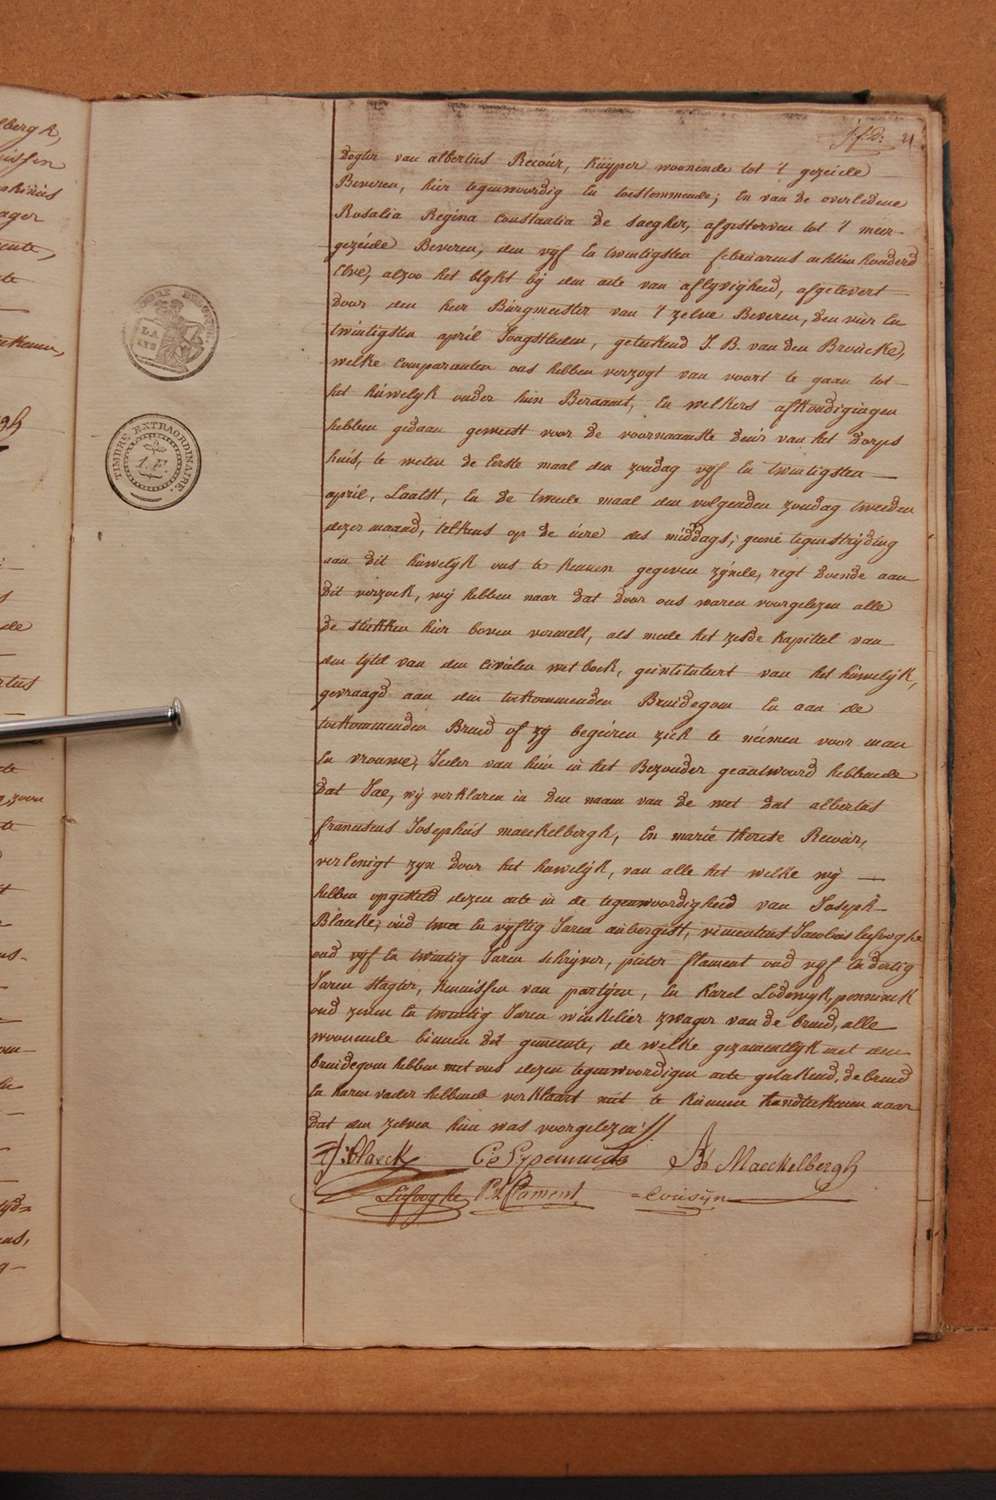 21
Dogter van albertus Recour, Kuyper woonende tot 't gezeide
Beveren, hier tegenwoordig en toestemmende; En van de overledene
Rosalia Regina Constantia de Saegher, afgestorven tot 't meer-
gezeide Beveren, den vyf en twintigsten februarius achtien honderd
Elve, alzoo het blykt bij den acte van aflyvigheid, afgelevert
door den heer Burgmeester van 't zelve Beveren, den vier en
twintigsten april Laastleden, getekend J. B. van den Broucke,
welke Comparanten ons hebben verzogt van voort te gaan tot
het húwelyk onder hun Beraamt, En welkers afkondigingen
hebben gedaan geweest voor de voornaamste deúr van het dorps
huis, te weten de Eerste maal den zondag vyf en twintigsten
april, Laatst, En de tweede maal den volgenden zondag tweeden
dezer maand, telkens op de úere des middags; geene tegenstryding
aan dit húwelyk ons te kennen gegeven zynde, regt doende aan
dit verzoek, wij hebben naer dat door ons waren voorgelezen alle
de stukken hier boven vermelt, als mede het zesde kapittel van
den tytel van den Civielen wet boek, geintituleert van het húwelyk,
gevraagd aan den toekommenden Bruidegom En aan de
toekommenden Bruid of zy begeiren zich te neimen voor man
En vrouwe, Ieder van hún in het Bezonder geantwoord hebbende
dat Jae, wy verklaren in den naam van de wet dat albertus
franciscus Josephús maeckelbergh, En marie therese Recour,
verEenigt zyn door het huwelyk, van alle het welke wij
hebben opgesteld dezen acte in de tegenwoordigheid van Joseph
Blaucke, oúd twee en vyftig Jaren aubergist, vincentius Jacobus Lefooghe
oud vyf En twintig Jaren schryver, pieter flament oud vyf En dertig
Jaren slagter, kennissen van partyen, En Karel Lodewyk ponninck
oud zeven En twintig Jaren winkelier zwager van de bruid, alle
woonende binnen dit gemeente, de welke gezamentlyk met den
bruidegom hebben met ons dezen tegenwoordigen acte getekend, de bruid
En haren vader hebbende verklaart niet te kunnen handtekenen naar
dat den zelven hún was voorgelezen
Blaeck A Maeckelbergh
Lefooghe P Flament Cousyn
TIMBRE EXTRAORDINAIRE.
1. F.